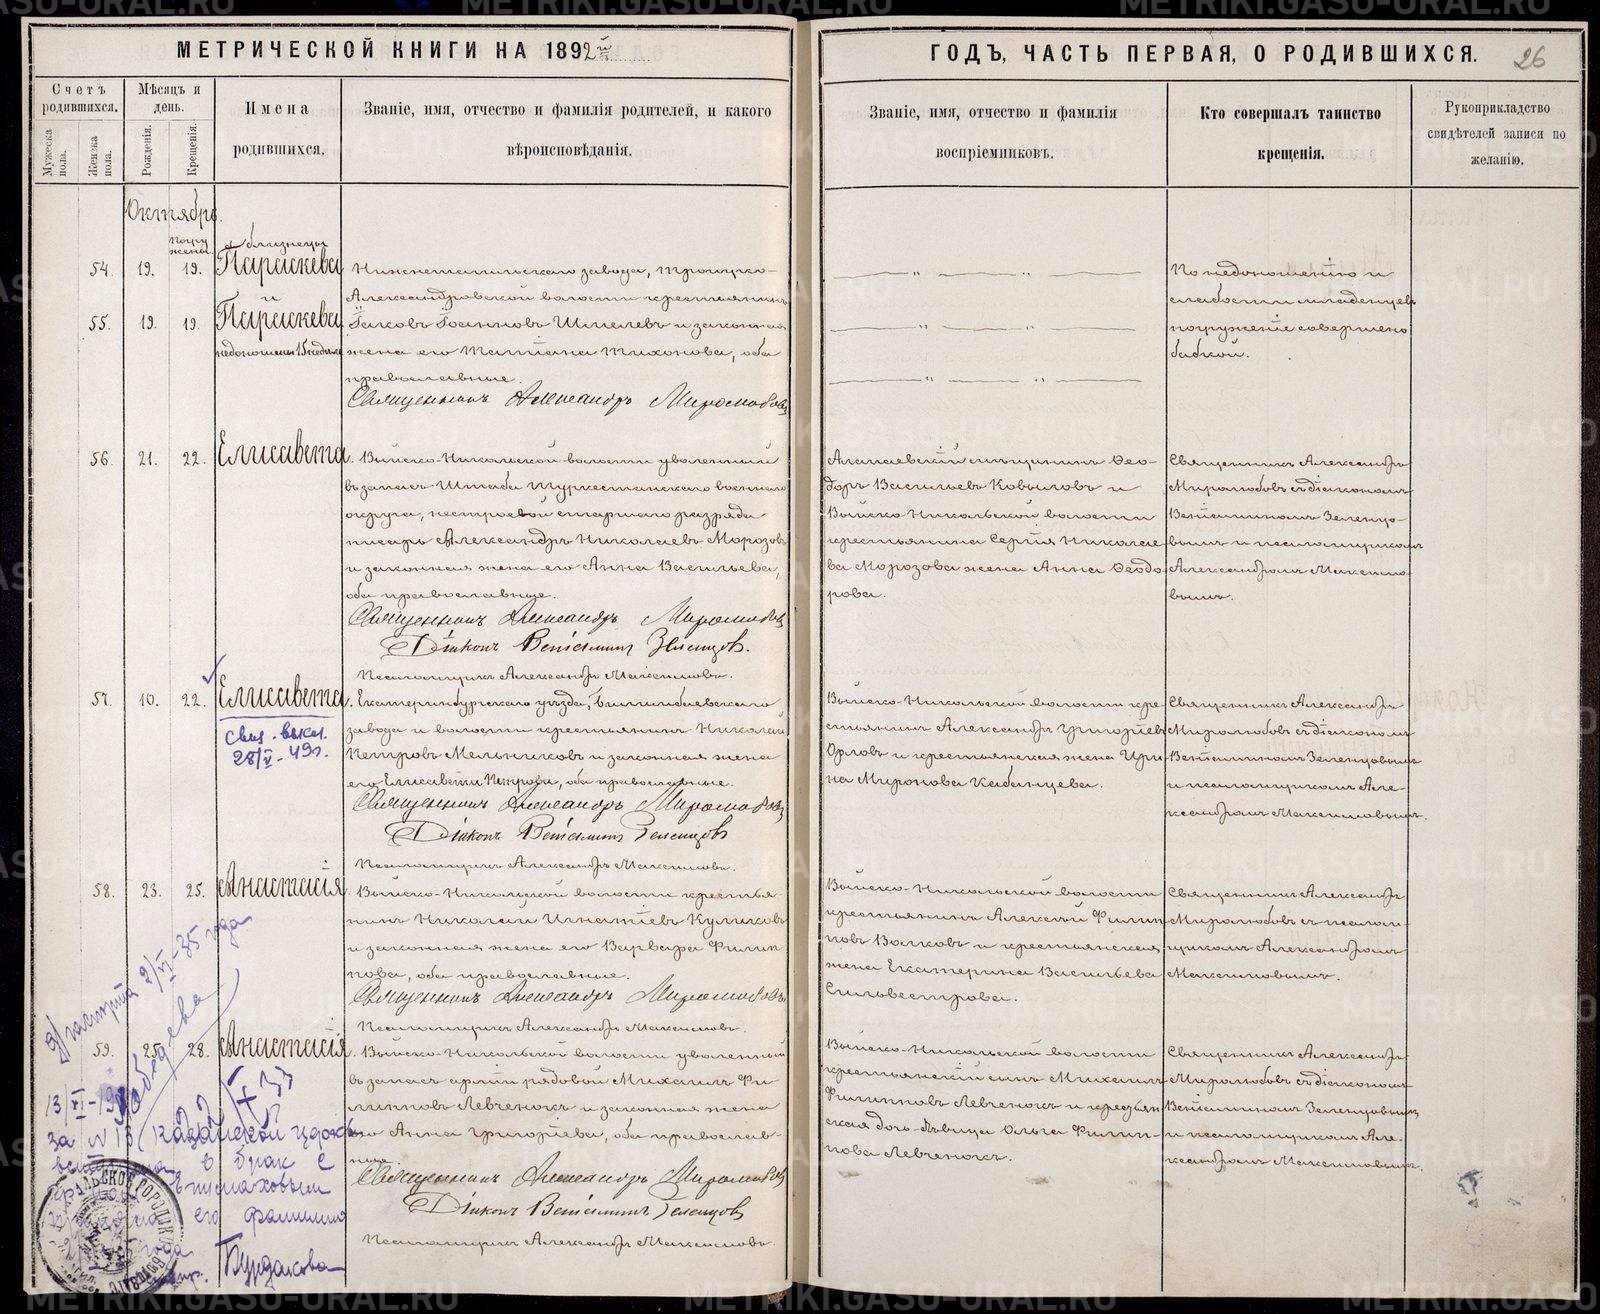 МЕТРИЧЕСКОЙ КНИГИ НА 1892й
Счетъ родившихся.
Мужеска пола.
Женска пола.
Мѣсяцъ и день.
Рожденія.
Крещенія.
Имена родившихся.
Званіе, имя, отчество и фамилія родителей, и какого
вѣроисповѣданія.
Октябрь.
погру
жены
близнецы
54. 19. 19. Параскева
и
55. 19. 19. Параскева
недоношены
Нижнетагильскаго завода, Троицко-
Александровской волости крестьянинъ
Іаковъ Іоанновъ Шмелевъ и законная
жена его Татіана Тихонова, оба
православные.
Священникъ Александръ Миролюбовъ
56. 21. 22. Елисавета.
Выйско-Никольской волости уволенный
въ запасъ Штаба Туркестанскаго военнаго
округа, нестроевой старшаго разряда
писарь Александръ Николаевъ Морозовъ
и законная жена его Анна Васильева,
оба православные.
Священникъ Александръ Миролюбовъ
Діаконъ Веніаминъ Зеленцовъ.
Псаломщикъ Александръ Максимовъ.
57. 10. 22. Елисавета.
свид. выси.
28/V-49г.
Екатеринбургскаго уѣзда, Билимбаевскаго
завода и волости крестьянинъ Николай
Петровъ Мельниковъ и законная жена
его Елисавета Петрова, оба православные.
Священникъ Александръ Миролюбовъ
Діаконъ Веніаминъ Зеленцовъ
Псаломщикъ Александръ Максимовъ.
58. 23. 25. Анастасія.
Выйско-Никольской волости крестья-
нинъ Николай Игнатіевъ Куликовъ
и законная жена его Варвара Филип-
пова, оба православные.
Священникъ Александръ Миролюбовъ
Псаломщикъ Александръ Максимовъ.
59. 25. 28. Анастасія.
Выйско-Никольской волости уволенный
въ запасъ арміи рядовой Михаилъ Фи-
липповъ Левченокъ и законная жена
его Анна Григоріева, оба православ-
ные.
Священникъ Александръ Миролюбовъ
Діаконъ Веніаминъ Зеленцовъ
Псаломщикъ Александръ Максимовъ.
2/VI-35 года
13/XI-19
за №
Казанской церкви
в брак с
его фамилию
года
Бурдакова
ГОДЪ, ЧАСТЬ ПЕРВАЯ, О РОДИВШИХСЯ.
26
Званіе, имя, отчество и фамилія
воспріемниковъ.
Кто совершалъ таинство
крещенія.
Рукоприкладство
свидѣтелей записи по
желанію.
По недоношенію и
слабости младенцевъ
погруженіе совершено
бабкой.
Алапаевскій мѣщанинъ Ѳео-
доръ Васильевъ Ковылковъ и
Выйско-Никольской волости
крестьянина Сергія Николае-
ва Морозова жена Анна Ѳеодо-
рова.
Священникъ Александръ
Миролюбовъ съ діакономъ
Веніаминомъ Зеленцо-
вымъ и псаломщикомъ
Александромъ Максимо-
вымъ.
Выйско-Никольской волости кре-
стьянинъ Александръ Григоріевъ
Орловъ и крестьянская жена Ири-
на Миронова Кабанцева.
Священникъ Александръ
Миролюбовъ съ діакономъ
Веніаминомъ Зеленцовымъ
и псаломщикомъ Але-
ксандромъ Максимовымъ.
Выйско-Никольской волости
крестьянинъ Алексѣй Филип-
повъ Волковъ и крестьянская
жена Екатерина Васильева
Сильвестрова.
Священникъ Александръ
Миролюбовъ съ псалом-
щикомъ Александромъ
Максимовымъ.
Выйско-Никольской волости
крестьянскій сынъ Михаилъ
Филипповъ Левченокъ и крестьян-
ская дочь-дѣвица Ольга Филип-
пова Левченокъ.
Священникъ Александръ
Миролюбовъ съ діакономъ
Веніаминомъ Зеленцовымъ
и псаломщикомъ Але-
ксандромъ Максимовымъ.
METRIKI.GASO-URAL.RU